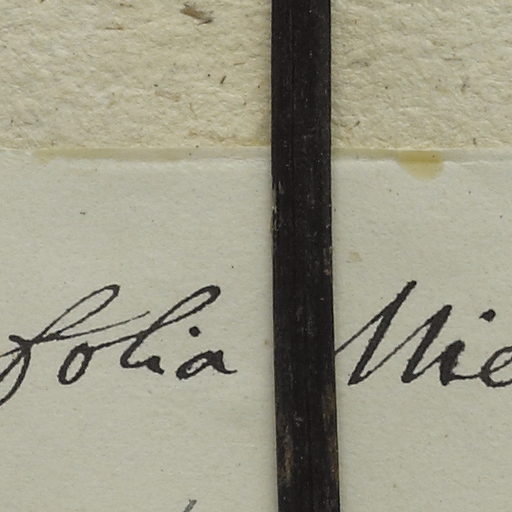 folia Mie